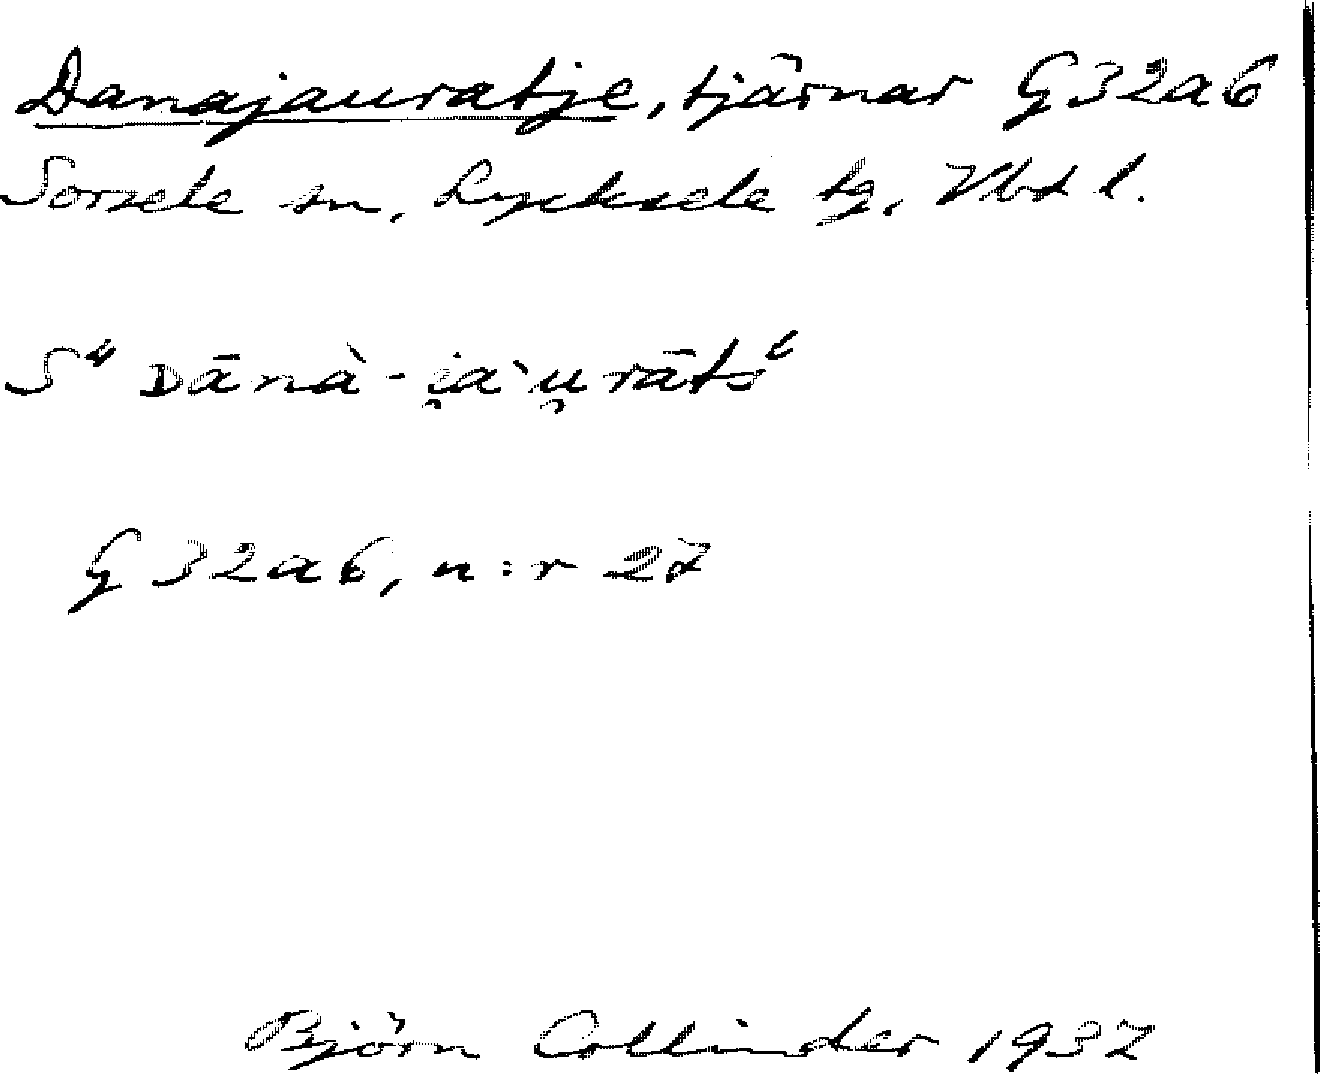 Danajauratje, tjärnar G32a6
Sorsele sn, Lycksele tg. Vbt l.
Sᵘ Dānà-i̯àu̯rātsᵉ
G 32a6, n:r 27
Björn Collinder 1937